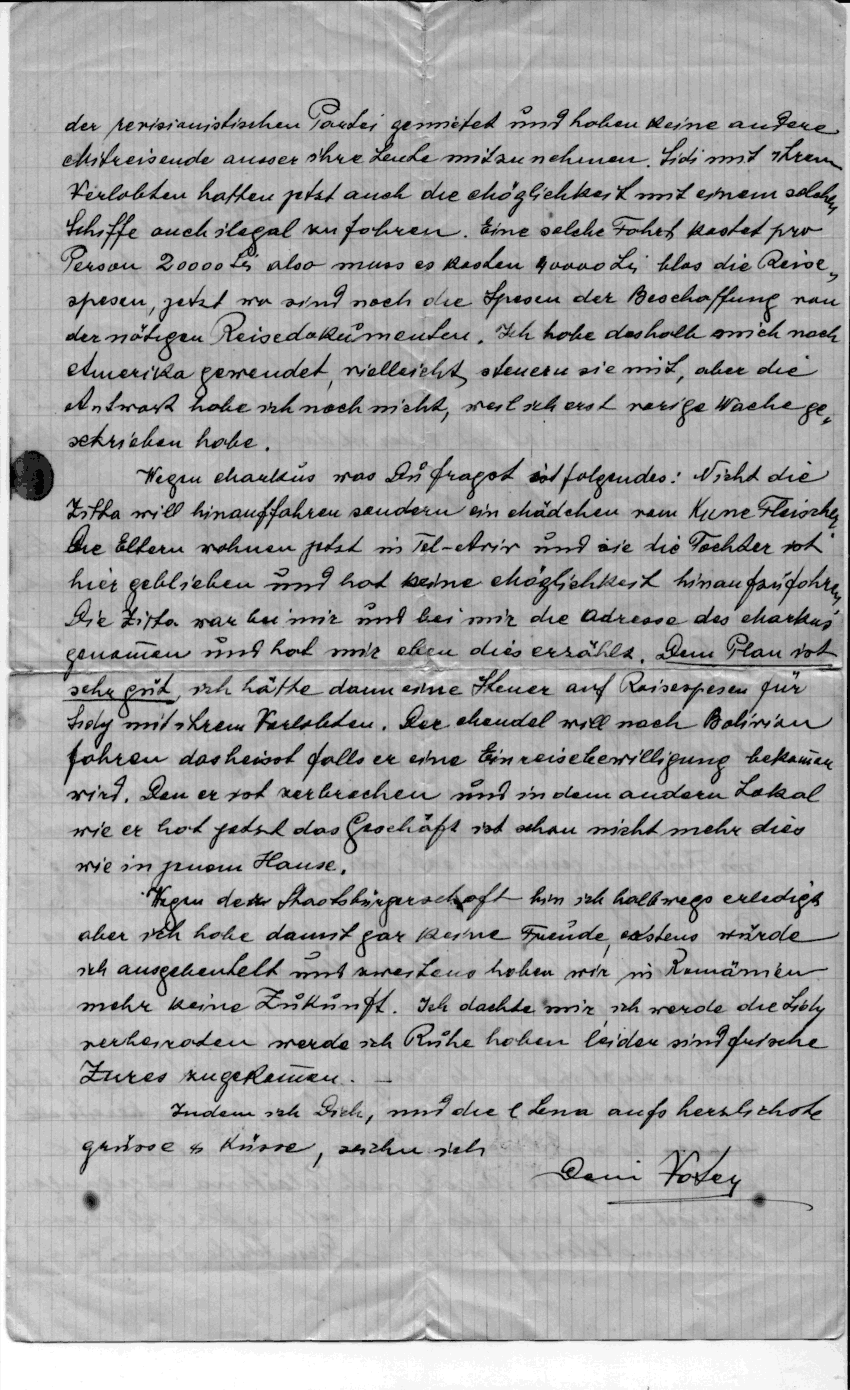 der revisianistischen Partei gemietet und haben keine andere
Mitreisende ausser ihre Leute mitzunehmen. Sidi mit ihrem
Verlobten hatten jetzt auch die Möglichkeit mit einem solchen
Schiffe auch ilegal zu fahren. Eine solche Fahrt kostet pro
Person 20000 Lei also muss es kosten 40000 Lei blos die Reise„
spesen, jetzt wo sind noch die Spesen der Beschaffung von
der nötigen Reisedokumenten. Ich habe deshalb mich nach
Amerika gewendet, vielleicht steuern sie mit, aber die
Antwort habe ich noch nicht, weil ich erst vorige Woche ge„
schrieben habe.
Wegen Markus was Du fragst ist folgendes: Nicht die
Zitta will hinauffahren sondern ein Mädchen vom Kune Fleischer
Die Eltern wohnen jetzt in Tel-Aviv und sie die Tochter ist
hier geblieben und hat keine Möglichkeit hinaufzufahren
Die Zitta war bei mir und bei mir die Adresse des Markus
genom̄en und hat mir eben dies erzählt. Dein Plan ist
sehr gut, ich hätte dann eine Steuer auf Reisespesen für
Sidy mit ihrem Verlobten. Der Mendel will nach Bolivian
fahren das heisst falls er eine Einreisebewilligung bekom̄en
wird. Den er ist zerbrochen und in dem andern Lokal
wie er hat jetzt das Geschäft ist schon nicht mehr dies
wie in jenem Hause.
Wegen der Staatsbürgerschaft bin ich halbwegs erledigt
aber ich habe damit gar keine Freude, erstens wurde
ich ausgebeutelt und zweitens haben wir in Romänien
mehr keine Zukunft. Ich dachte mir ich werde die Sidy
verheiraten werde ich Ruhe haben leider sind frische
Zures zugekom̄en. —
Indem ich Dich, und die l Lena aufs herzlichste
grüsse & küsse, zeichn ich
Dein Vater